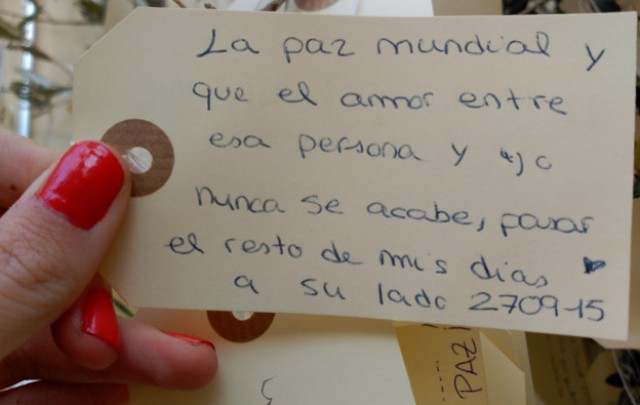 La paz mundial y
que el amor entre
esa persona y yo
nunca se acabe, pasar
el resto de mis dias
a su lado 270915
PAZ